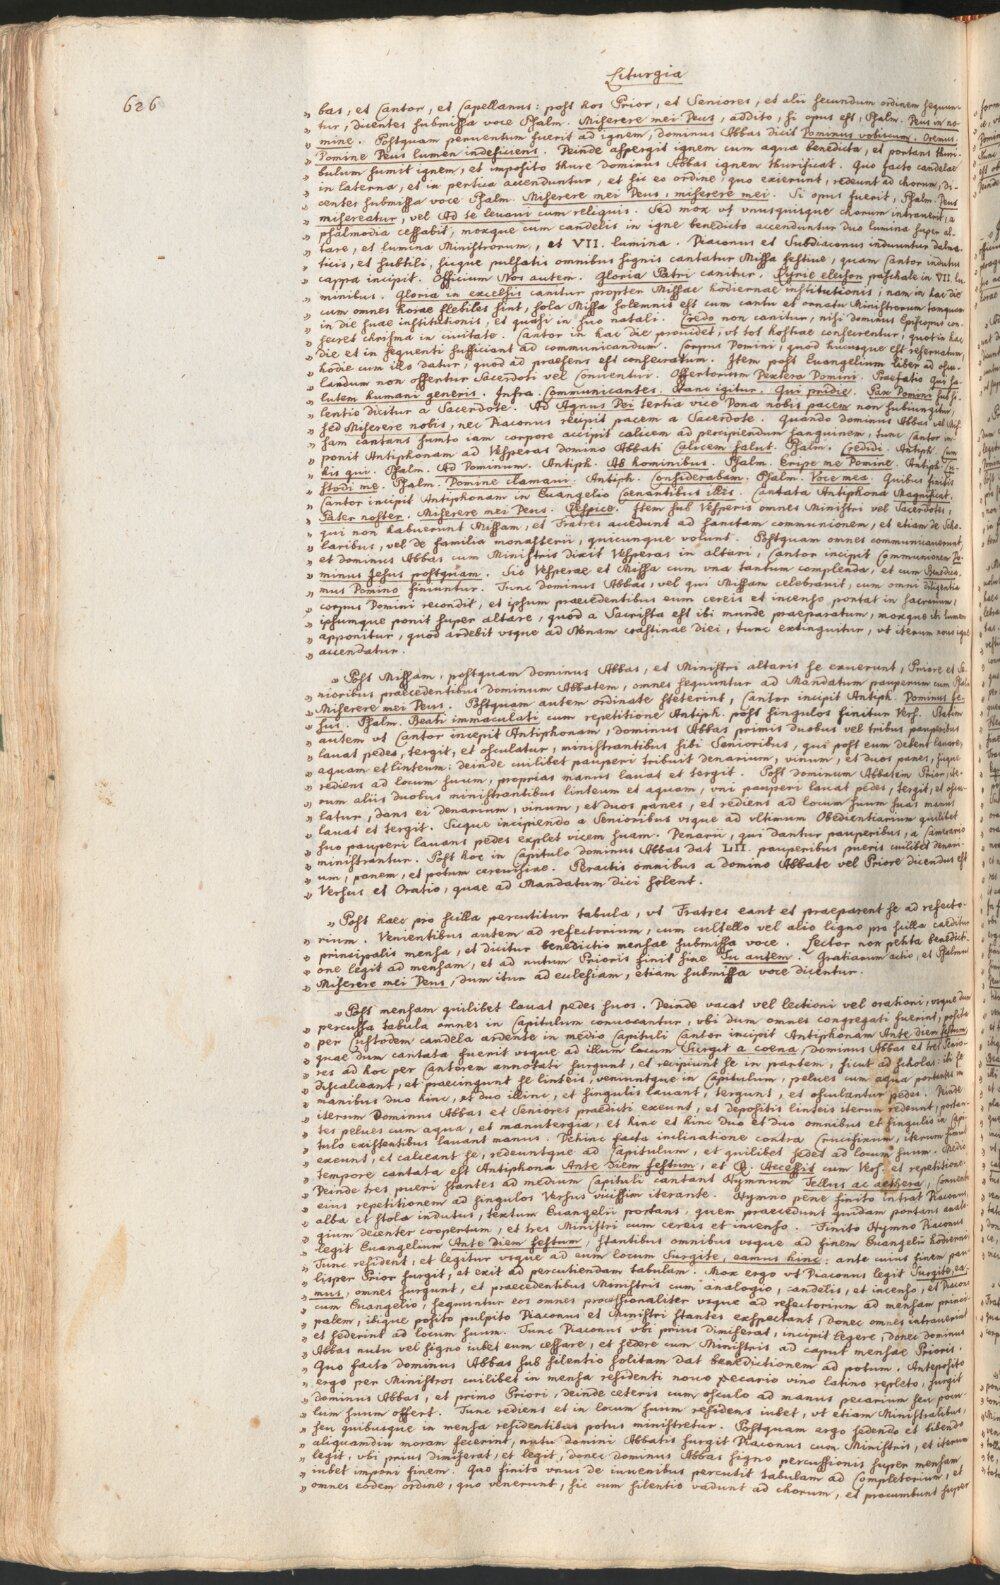 Liturgia
626
„ bas, et Cantor, et Capellanus: post hos Prior, et Seniores, et alii secundum ordinem sequun-
„ tur, dicentes submissa voce Psalm. Miserere mei Deus, addito, si opus est, Psalm. Deus in no-
„ mine. Postquam peruentum fuerit ad ignem, dominus Abbas dicit Dominus vobiscum, Oremus,
„ Domine Deus lumen indeficiens. Deinde aspergit ignem cum aqua benedicta, et portans thuri-
„ bulum sumit ignem, et imposito thure dominus Abbas ignem thurificat. Quo facto candelae
„ in laterna, et in pertica accenduntur, et sic eo ordine, quo exierunt, redeunt ad chorum, di-
„ centes submissa voce Psalm. Miserere mei Deus, miserere mei. Si opus fuerit, Psalm. Deus
„ misereatur, vel Ad te leuaui cum reliquis. Sed mox vt vnusquisque chorum intrauerit, a
„ psalmodia cessabit, moxque cum candelis in igne benedicto accenduntur duo lumina super al-
„ tare, et lumina Ministrorum, et VII. lumina. Diaconus et Subdiaconus induuntur dalma-
„ ticis, et subtili, sicque pulsatis omnibus signis cantatur Missa festiue, quam Cantor indutus
„ cappa incipit. Officium Nos autem. Gloria Patri canitur. Kyrie eleison paschale in VII. lu-
„ minibus. Gloria in excelsis canitur propter Missae hodiernae institutionis, nam in hac die
„ cum omnes horae flebiles sint, sola Missa solemnis est cum cantu et ornatu Ministrorum tanquam
„ in die suae institutionis, et quasi in suo natali. Credo non canitur, nisi dominus Episcopus con-
„ secret chrisma in ciuitate. Cantor in hac die prouidet, vt tot hostiae consecrentur, quot in hac
„ die et in sequenti sufficiant ad communicandum. Corpus Domini, quod hucusque est reseruatum,
„ hodie cum illo datur, quod ad praesens est consecratum. Item post Euangelium liber ad oscu-
„ landum non offertur Sacerdoti vel Conuentui. Offertorium Dextera Domini. Praefatio Qui sa-
„ lutem humani generis. Infra Communicantes. Hanc igitur. Qui pridie. Pax Domini sub si-
„ lentio dicitur a Sacerdote. Ad Agnus Dei tertia vice Dona nobis pacem non subiungitur,
„ sed Miserere nobis, nec Diaconus recipit pacem a Sacerdote. Quando dominus Abbas vel Mis-
„ sam cantans sumto iam corpore accipit calicem ad percipiendum sanguinem, tunc Cantor im-
„ ponit Antiphonam ad Vesperas domino Abbati Calicem salut. Psalm. Credidi. Antiph. Cum
„ his qui. Psalm. Ad Dominum. Antiph. Ab hominibus. Psalm. Eripe me Domine. Antiph. Cu-
„ stodi me. Psalm. Domine clamaui. Antiph. Considerabam. Psalm. Voce mea. Quibus finitis
„ Cantor incipit Antiphonam in Euangelio Coenantibus illis. Cantata Antiphona Magnificat.
„ Pater noster. Miserere mei Deus. Respice. Item sub Vesperis omnes Ministri vel Sacerdotes,
„ qui non habuerunt Missam, et Fratres accedunt ad sanctam communionem, et etiam de Scho-
„ laribus, vel de familia monasterii, quicunque volunt. Postquam omnes communicauerunt,
„ et dominus Abbas cum Ministris dixit Vesperas in altari, Cantor incipit Communionem Do-
„ minus Jesus postquam. Sic Vesperae et Missa cum vna tantum complenda, et cum Benedica-
„ mus Domino finiuntur. Tunc dominus Abbas, vel qui Missam celebrauit, cum omni diligentia
„ corpus Domini recondit, et ipsum praecedentibus eum cereis et incenso portat in sacrarium,
„ ipsumque ponit super altare, quod a Sacrista est ibi munde praeparatum, moxque ibi lumen
„ apponitur, quod ardebit vsque ad Nonam crastinae diei, tunc extinguitur, vt iterum nouo igne
„ accendatur.
„ Post Missam, postquam dominus Abbas, et Ministri altaris se exuerunt, Priore et Se-
„ nioribus praecedentibus dominum Abbatem, omnes sequuntur ad Mandatum pauperum cum Psalm
„ Miserere mei Deus. Postquam autem ordinate steterint, Cantor incipit Antiph. Dominus Je-
„ sus. Psalm. Beati immaculati cum repetitione Antiph. post singulos finitur Vers. Statim
„ autem vt Cantor incepit Antiphonam, dominus Abbas primis duobus vel tribus pauperibus
„ lauat pedes, tergit, et osculatur, ministrantibus sibi Senioribus, qui post eum debent lauare,
„ aquam et linteum: deinde cuilibet pauperi tribuit denarium, vinum, et duos panes, sicque
„ rediens ad locum suum, proprias manus lauat et tergit. Post dominum Abbatem Prior, ite-
„ rum aliis duobus ministrantibus linteum et aquam, vni pauperi lauat pedes, tergit, et oscu-
„ latur, dans ei denarium, vinum, et duos panes, et rediens ad locum suum suas manus
„ lauat et tergit. Sicque incipiendo a Senioribus vsque ad vltimum Obedientiarium quilibet
„ suo pauperi lauans pedes explet vicem suam. Denarii, qui dantur pauperibus, a Camerario
„ ministrantur. Post hoc in Capitulo dominus Abbas dat LII. pauperibus pueris cuilibet denari-
„ um, panem, et potum cereuisiae. Peractis omnibus a domino Abbate vel Priore dicendus est
„ Versus et Oratio, quae ad Mandatum dici solent.
„ Post haec pro scilla percutitur tabula, vt Fratres eant et praeparent se ad refecto-
„ rium. Venientibus autem ad refectorium, cum cultello vel alio ligno pro scilla caeditur
„ principalis mensa, et dicitur benedictio mensae submissa voce. Lector non petita benedicti-
„ one legit ad mensam, et ad nutum Prioris finit sine Tu autem. Gratiarum actio, et Psalmus
„ Miserere mei Deus, dum itur ad ecclesiam, etiam submissa voce dicentur.
„ Post mensam quilibet lauat pedes suos. Deinde vacat vel lectioni vel orationi, vsque dum
„ percussa tabula omnes in Capitulum conuocantur, vbi dum omnes congregati fuerint, posita
„ per Custodem candela ardente in medio Capituli Cantor incipit Antiphonam Ante diem festum,
„ quae dum cantata fuerit vsque ad illum locum Surgit a coena, dominus Abbas et tres Senio-
„ res ad hoc per Cantorem annotati surgunt, et recipiunt se in partem, sicut ad scholas: ibi se
„ discalceant, et praecingunt se linteis, veniuntque in Capitulum, pelues cum aqua portantes in
„ manibus duo hinc, et duo illinc, et singulis lauant, tergunt, et osculantur pedes. Deinde
„ iterum Dominus Abbas et Seniores praedicti exeunt, et depositis linteis iterum redeunt, portan-
„ tes pelues cum aqua, et manutergia, et hinc et hinc duo et duo omnibus et singulis in Capi-
„ tulo existentibus lauant manus. Dehinc facta inclinatione contra Crucifixum, iterum simul
„ exeunt, et calceant se, redeuntque ad Capitulum, et quilibet sedet ad locum suum. Medio
„ tempore cantata est Antiphona Ante diem festum, et R. Accessit cum Vers. et repetitione.
„ Deinde tres pueri stantes ad medium Capituli cantant Hymnum Tellus ac aethera, Conuentu
„ eius repetitionem ad singulos Versus vicissim iterante. Hymno pene finito intrat Diaconus,
„ alba et stola indutus, textum Euangelii portans, quem praecedunt quidam portans analo-
„ gium decenter coopertum, et tres Ministri cum cereis et incenso. Finito Hymno Diaconus
„ legit Euangelium Ante diem festum, stantibus omnibus vsque ad finem Euangelii hodierni.
„ Tunc resident, et legitur vsque ad eum locum Surgite, eamus hinc: ante cuius finem pau-
„ lisper Prior surgit, et exit ad percutiendam tabulam. Mox ergo vt Diaconus legit Surgite, ea-
„ mus, omnes surgunt, et praecedentibus Ministris cum analogio, candelis, et incenso, et Diacono
„ cum Euangelio, sequuntur eos omnes processionaliter vsque ad refectorium ad mensam princi-
„ palem, ibique posito pulpito Diaconus et Ministri stantes exspectant, donec omnes intrauerint
„ et sederint ad locum suum. Tunc Diaconus vbi prius dimiserat, incipit legere, donec dominus
„ Abbas nutu vel signo iubet eum cessare, et sedere cum Ministris ad caput mensae Prioris.
„ Quo facto dominus Abbas sub silentio solitam dat benedictionem ad potum. Anteposito
„ ergo per Ministros cuilibet in mensa residenti nouo pecario vino latino repleto, surgit
„ dominus Abbas, et primo Priori, deinde ceteris cum osculo ad manus pecarium seu pocu-
„ lum suum offert. Tunc rediens et in locum suum residens iubet, vt etiam Ministralibus,
„ seu quibusque in mensa residentibus potus ministretur. Postquam ergo sedendo et bibendo
„ aliquamdiu moram fecerint, nutu domini Abbatis surgit Diaconus cum Ministris, et iterum
„ legit, vbi prius dimiserat, et legit, donec dominus Abbas signo percussionis super mensam
„ iubet imponi finem. Quo finito vnus de iuuenibus percutit tabulam ad Completorium, et
„ omnes eodem ordine, quo venerunt, sic cum silentio vadunt ad chorum, et procumbunt super